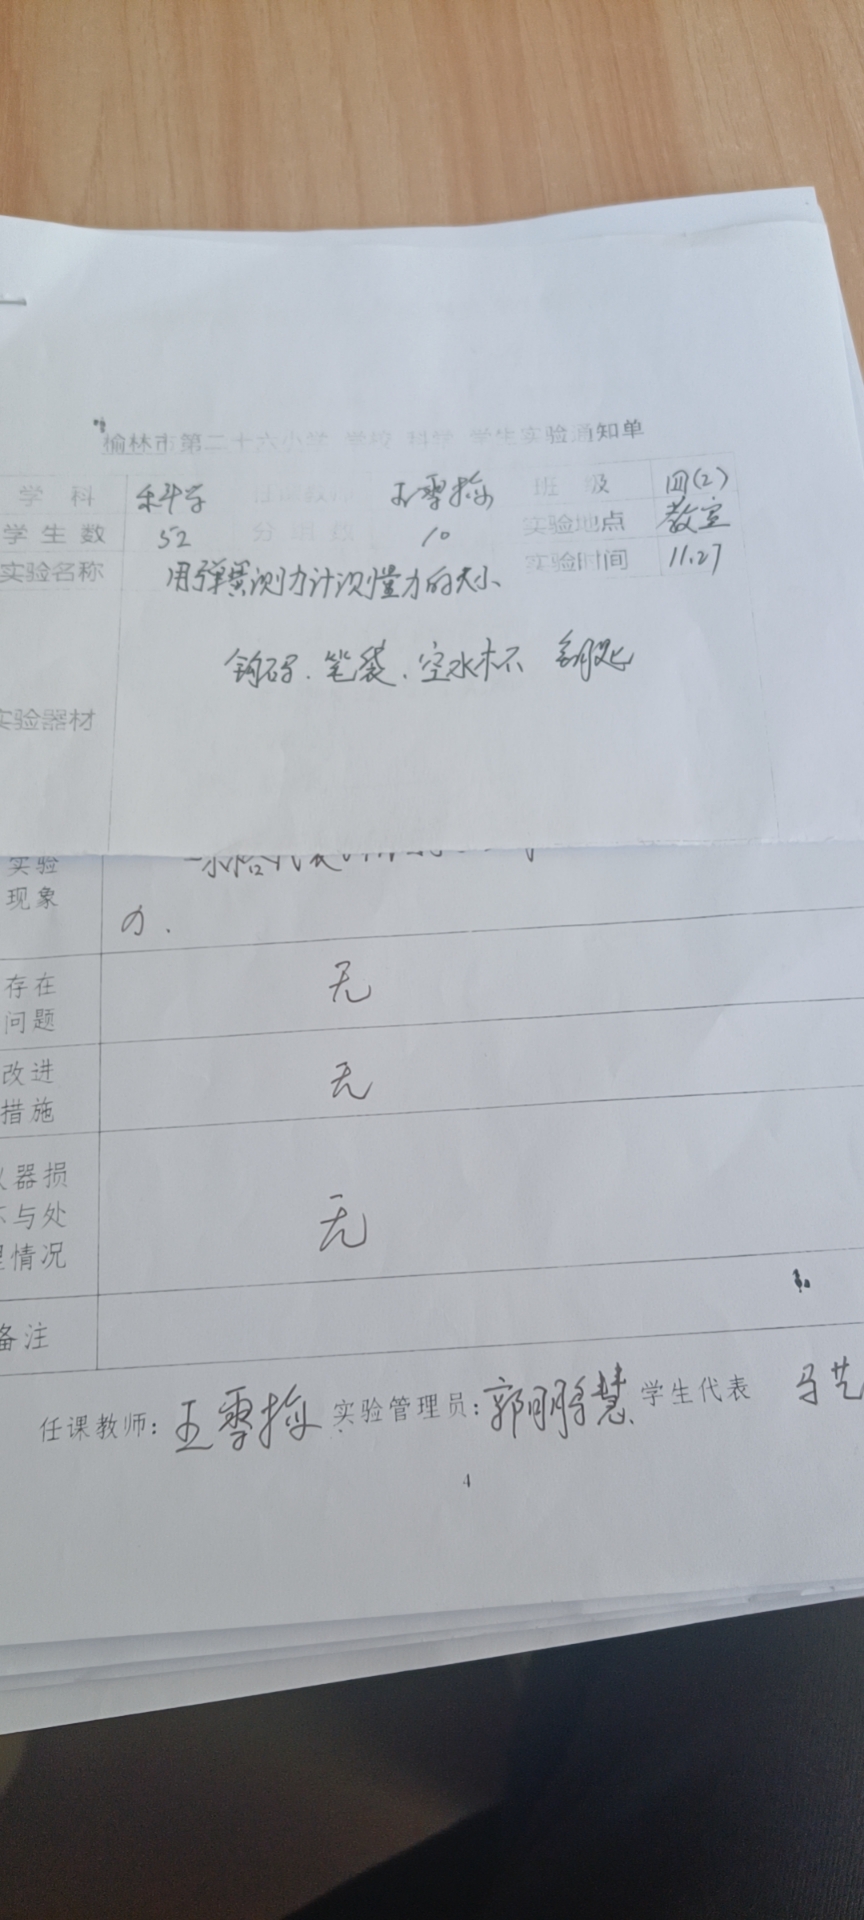 榆林市第二十六小学 学校 科学 学生实验通知单
学 科 科学 任课教师 王雪梅 班 级 四(2)
学生数 52 分组数 10 实验地点 教室
实验名称 用弹簧测力计测量力的大小 实验时间 11.27
钩码、笔袋、空水杯 钥匙
实验器材
实验
现象
力.
存在
问题 无
改进
措施 无
器损
与处
情况 无
备注
任课教师: 王雪梅 实验管理员: 郭鹏慧 学生代表 马艺
4